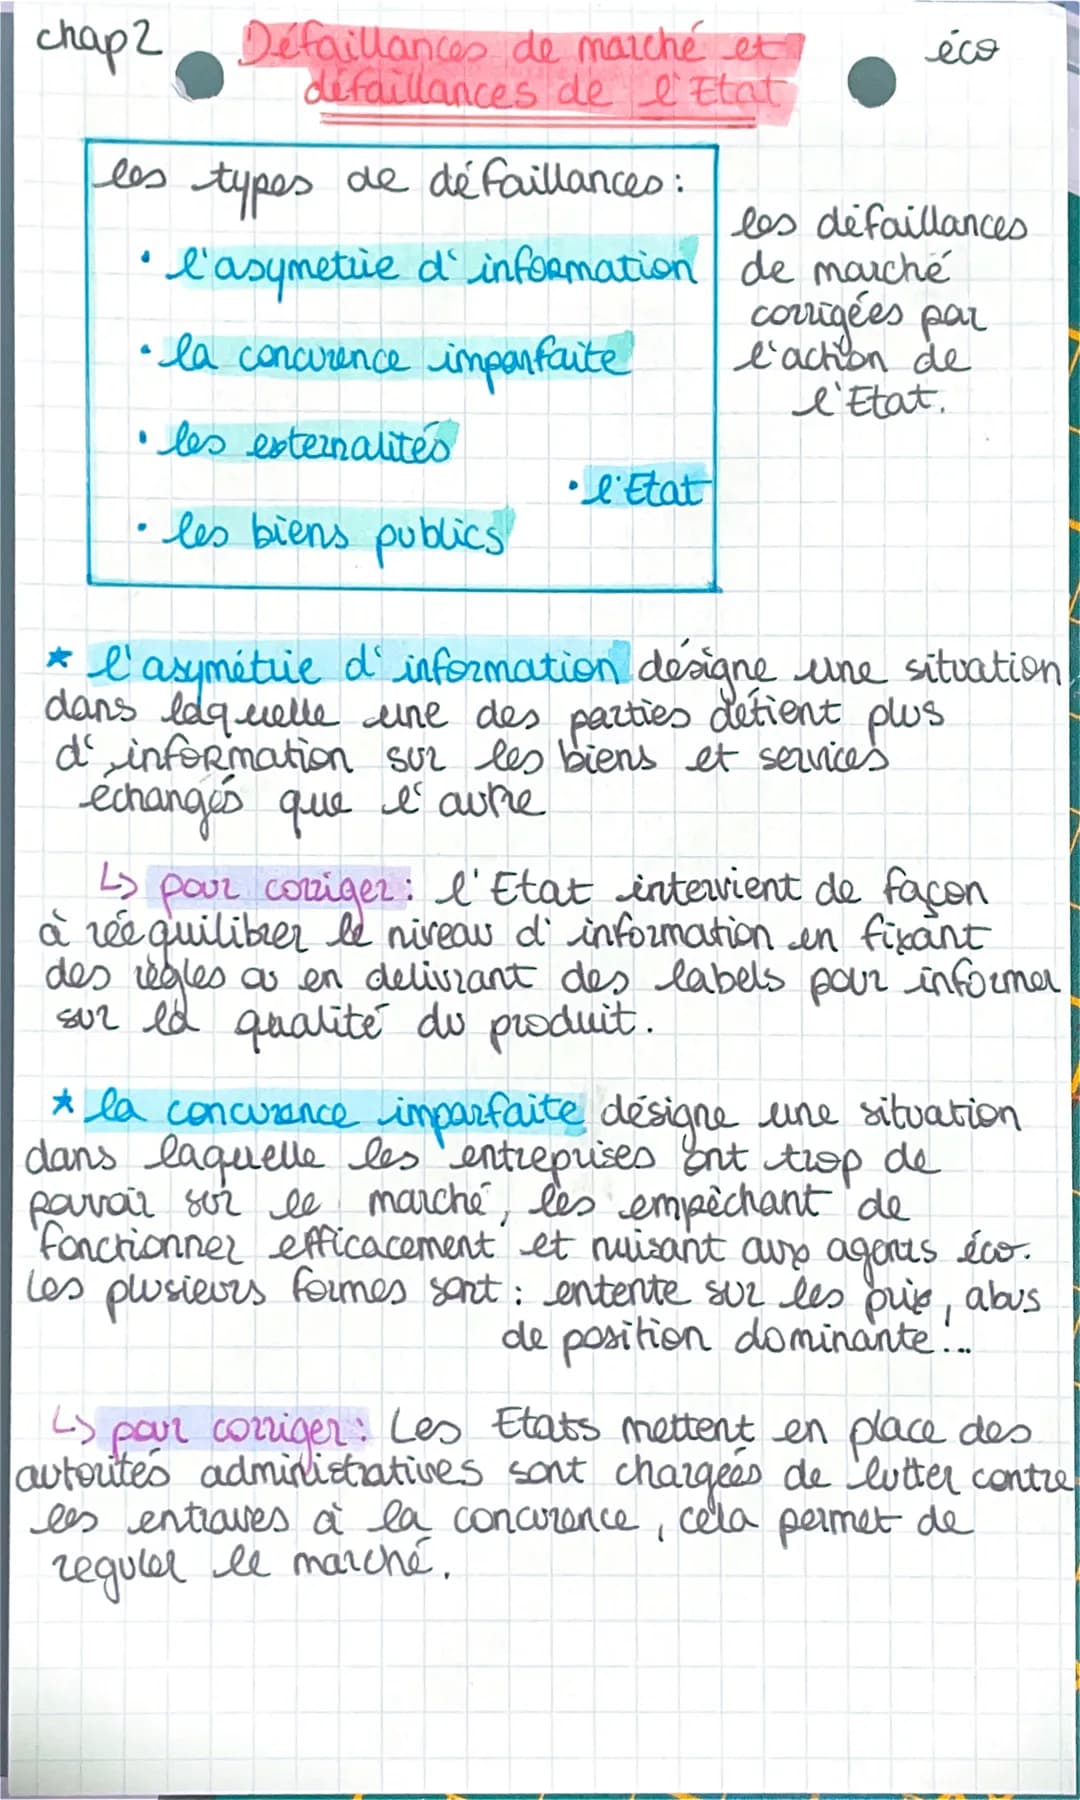 chap2
Défaillances de marché et
défaillances de l'Etat
éco
les types de défaillances:
• l'asymetrie d'information
• la concurence imparfaite
• les externalités
• l'Etat
• les biens publics
les défaillances
de marché
corrigées par
l'action de
l'Etat.
* l'asymétrie d'information désigne une situation
dans laquelle une des parties détient plus
d'information sur les biens et services
échangés que l'autre
↳ pour corriger: l'Etat intervient de façon
à rééquilibrer le niveau d'information en fixant
des règles ou en delivrant des labels pour informer
sur la qualité du produit.
* la concurance imparfaite désigne une situation
dans laquelle les entreprises ont trop de
pouvoir sur le marché, les empêchant de
fonctionner efficacement et nuisant aux agents éco.
Les plusieurs formes sont : entente sur les prix, abus
de position dominante...
↳ pour corriger: Les Etats mettent en place des
autorités administratives sont chargées de lutter contre
les entraves à la concurence, cela permet de
reguler le marché.